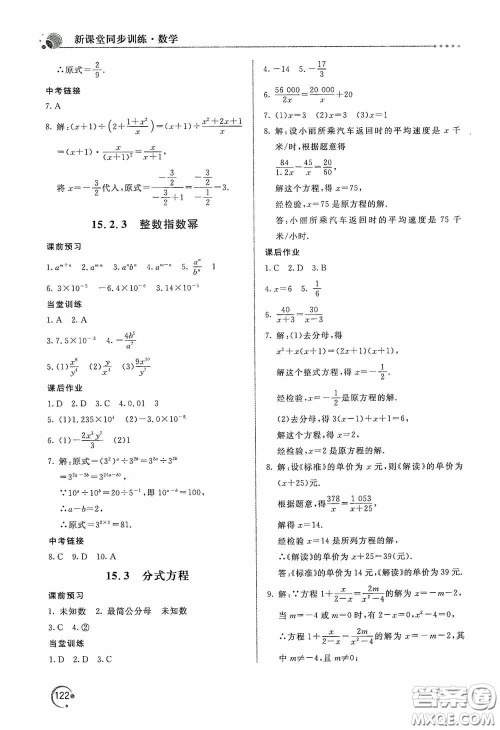 新课堂同步训练·数学
∴原式=2/9.
中考链接
7. A
8. 解:(x+1)÷(2+(1+x²)/x)=(x+1)÷(x²+2x+1)/x
=(x+1)·x/(x+1)²=x/(x+1).
将 x=-3/2代入,原式=(-3/2)/(-3/2+1)=(-3/2)/(-1/2)=3.
15.2.3 整数指数幂
课前预习
1. aᵐ⁺ⁿ 2. aᵐⁿ 3. aⁿbⁿ 4. aᵐ⁻ⁿ 5. aⁿ/bⁿ
6. 3×10⁻⁵ -6.4×10⁻⁵ 3.14×10⁻⁵
当堂训练
1. A 2. A
3. 7.5×10⁻³ 4. -4b²/a²
5. (1) x⁸/y⁴ (2) y/x³ (3) 9x¹⁰/y⁷
课后作业
1. D 2. D 3. C 4. 0.01 3
5. (1) 1.235×10⁴ (2) -3.96×10⁻⁸
6. (1) -2x³y⁷/3 (2) 1
7. 解:原式=(3²)ᵃ÷3²ᵇ=3²ᵃ÷3²ᵇ
=3²ᵃ⁻²ᵇ=3²⁽ᵃ⁻ᵇ⁾.
∵10ᵃ÷10ᵇ=20÷5⁻¹,即10ᵃ⁻ᵇ=100.
∴a-b=2,
∴原式=3²ˣ²=81.
中考链接
8. C 9. D 10. A
15.3 分式方程
课前预习
1. 未知数 2. 最简公分母 未知数
3. C 4. ②
当堂训练
1. D 2. D 3. C
4. -14 5. -17/3
6. 56 000/2x=20 000/x+20
7. (1)x=3 (2)x=2 (3)x=1
8. 解:设小丽所乘汽车返回时的平均速度是 x 千
米/时,根据题意得
84/1.2x-45/x=20/60.
解这个方程,得 x=75,
经检验,x=75 是原方程的解.
答:小丽所乘汽车返回时的平均速度是 75 千
米/小时.
课后作业
1. C 2. D 3. B
4. x=6 5. 1/6
6. 40/(x+3)=30/(x-3)
7. 解:(1)去分母,得
x²+x(x+1)=(2x+2)(x+1).
解这个整式方程,得 x=-1/2.
经检验,x=-1/2是原方程的解.
(2)去分母,得 3(x-1)+6x=x+5.
解得 x=1.
经检验,x=1 是增根,
∴原分式方程无解.
8. 解:设《标准》的单价为 x 元,则《解读》的单价为
(x+25)元.
根据题意,得378/x=1 053/(x+25).
解得 x=14.
经检验 x=14 是所列方程的解.
∴《解读》的单价为 x+25=39(元).
答:《标准》的单价为 14 元,《解读》的单价为 39 元.
9. 解:∵方程1+x/(2-x)=2m/(x²-4)的解为 x=-m-2,
当 m=-4 或 m=0 时,2-x=0,或 x²-4=0,
∴方程1+x/(2-x)=2m/(x²-4)的解为 x=-m-2,此
时 m≠-4,m≠0.
122
作业精灵答案
MXQE.COM